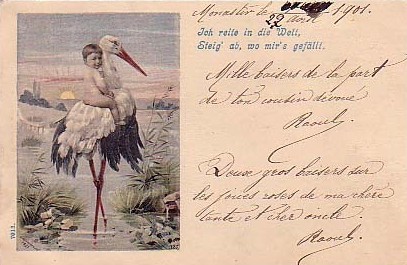 Monastir le
22 Août 1901.
Ich reite in die Welt,
Steig' ab, wo mir's gefällt.
Mille baisers de la part
de ton cousin dévoué
Raoul
Deux gros baisers sur
les joues roses de ma chère
tante et cher oncle.
Raoul